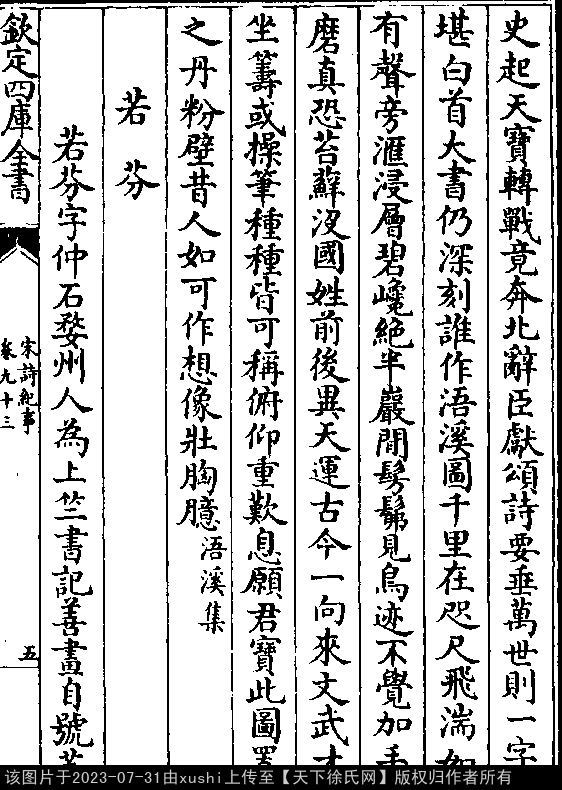 史起天寶轉戰竟奔北辭臣獻頌詩要垂萬世則一字
堪白首大書仍深刻誰作浯溪圖千里在咫尺飛湍如
有聲旁滙浸層碧巉絕半巖間髣髴見鳥迹不覺加手
磨真恐苔蘚沒國姓前後異天運古今一向來文武才
坐籌或操筆種種皆可稱俯仰重歎息願君寶此圖置
之丹粉壁昔人如可作想像壯胸臆浯溪集
若芬
若芬字仲石婺州人為上竺書記善畫自號芝
欽定四庫全書
宋詩紀事
卷九十三
五
该图片于2023-07-31由xushi上传至【天下徐氏网】版权归作者所有